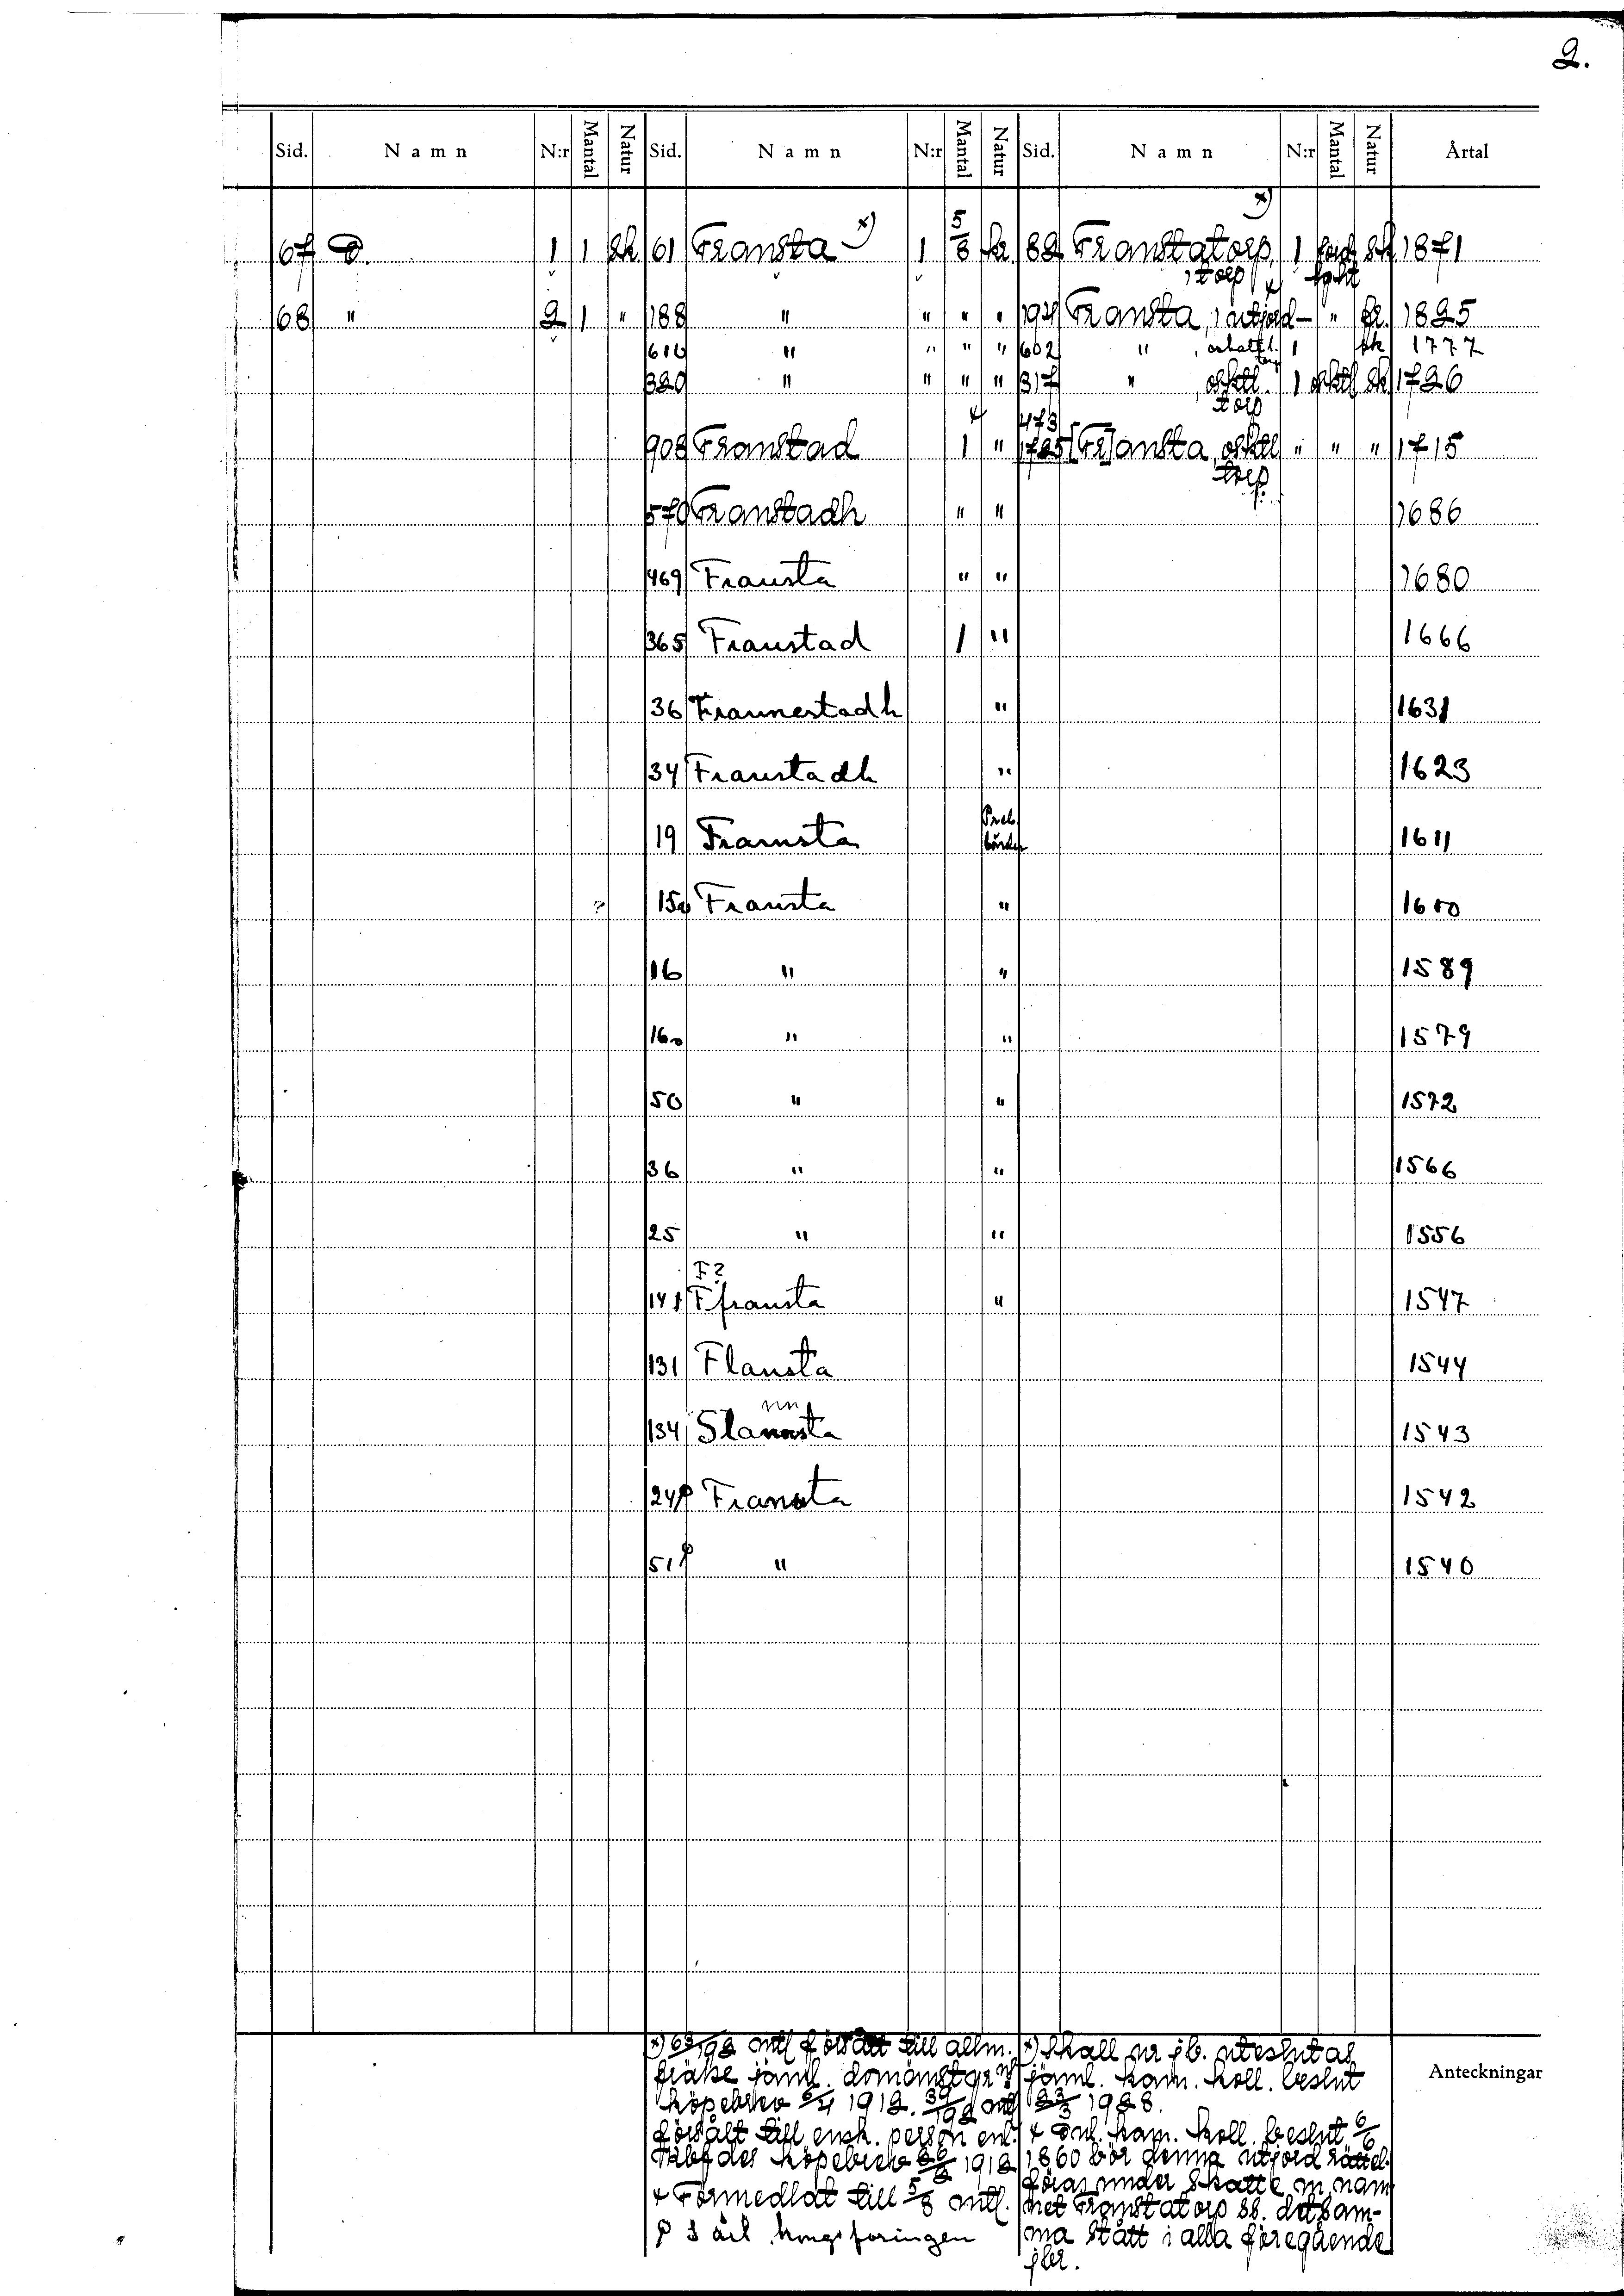 2.
Sid. Namn N:r Mantal Natur Sid. Namn N:r Mantal Natur Sid. Namn N:r Mantal Natur Årtal
67 D. 1 1 sk. 61 Fransta x) 1 5/8 kr. 82 Franstatorp, 1 torp x) 1 sk 1871
68 " 2 1 " 188 " " " " 194 Fransta, 1 utjord - " kr. 1825
616 " " " " 602 " 1 sk 1777
320 " " " " 317 " , oskttl. torp 1 oskttl sk 1726
908 Franstad 1 " 473 1725 [Fr]ansta, oskttl torp " " " 1715
570 Franstadh " " 1686
469 Fransta " " 1680
365 Franstad 1 " 1666
36 Frannestadh " 1631
34 Franstadh " 1623
19 Fransta Preb. 1611
? 15 Fransta " 1600
16 " " 1589
16 " " 1579
50 " " 1572
36 " " 1566
25 " " 1556
F?
141 Ffransta " 1547
131 Flansta 1544
nn
134 Slannsta 1543
24 Fransta 1542
51 " 1540
Anteckningar
x) 63/192 mtl försått till allm.
jäml.
köpebrev 6/4 1912. 39/192 mtl
försålt till ensk. person enl.
köpebrev 1912
+ Förmedlat till 5/8 mtl.
x) Skall ur jb. uteslutas
jäml. kam. koll. beslut
23/3 1928.
+ Enl. kam. koll. beslut 6/6
1860 bör denna utjord rättel.
föras under skatte m. nam
net Franstatorp ss. detsam-
ma stått i alla föregående
jbr.